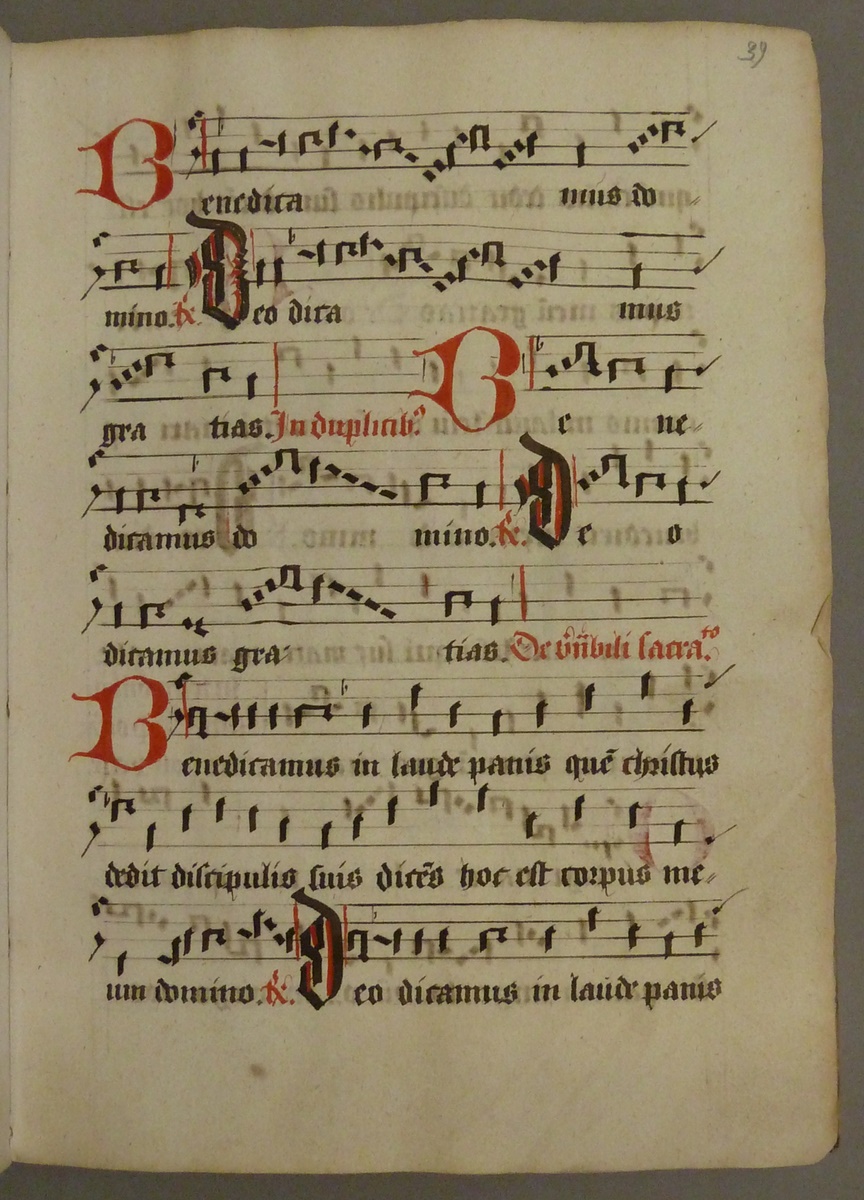 39
Benedica mus do-
mino. R. Deo dica mus
gra tias. In duplicib9 Be ne-
dicamus do mino. R. De o
dicamus gra- tias. De vn̄bili sacra.to
Benedicamus in laude panis quē christus
dedit discipulis suis dicēs hoc est corpus me-
um domino. R. Deo dicamus in laude panis